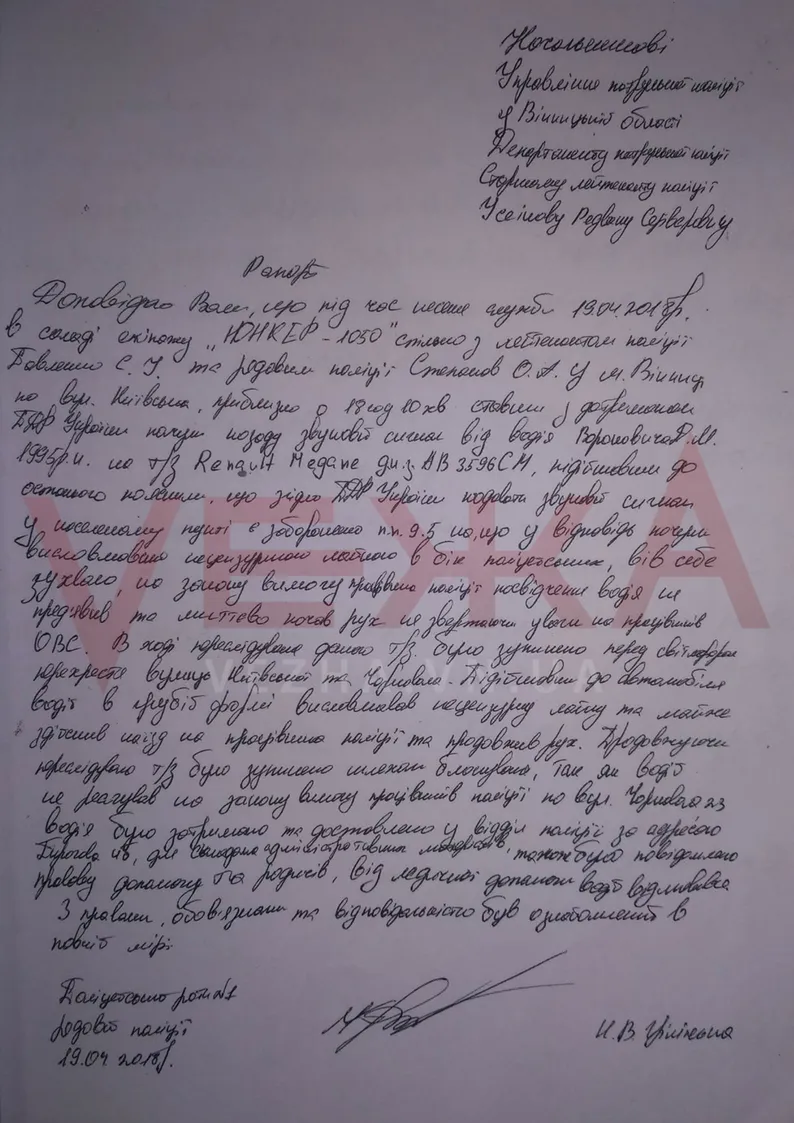 Начальникові
Управління патрульної поліції
у Вінницькій області
Департаменту патрульної поліції
Старшому лейтенанту поліції
Усеінову Редвану Серверовичу
Рапорт
Доповідаю Вам, що під час несення служби 19.04.2018р.
в складі екіпажу „ЮНКЕР-1050" спільно з лейтенантом поліції
Павленко С. У. та рядовим поліції Степанов О. А. У м. Вінниці
по вул. Київська, приблизно о 18 год 10 хв ставши з дотриманням
ПДР України почули позаду звуковий сигнал від водія Вороновича Д.М.
1995р.н. на т/з Renault Megane дн.з. АВ3596СМ, підійшовши до
останього пояснили, що згідно ПДР України подавати звуковий сигнал
у населеному пункті є заборонено п.п. 9.5 на що у відповідь почули
висловлювання нецензурною лайкою в бік поліцейських, вів себе
зухвало, на законну вимогу працівника поліції посвідчення водія не
пред'явив та миттєво почав рух не звертаючи уваги на працівників
ОВС. В ході переслідування даного т/з. було зупинено перед світлофором
перехрестя вулиць Київської та Чорновола. Підійшовши до автомобіля
водій в грубій формі висловлював нецензурну лайку та майже
здійснив наїзд на працівника поліції та продовжив рух. Продовжуючи
переслідування т/з було зупинено шляхом блокування, так як водій
не реагував на законну вимогу працівників поліції по вул. Чорновола
водія було затримано та доставлено у відділ поліції за адресою
Пирогова 4б, для складання адміністративних матеріалів, також було повідомлено
правову допомогу та родичів, від медичної допомоги водій відмовився
З правами, обов'язками та відповідальністю був ознайомлений в
повній мірі
Поліцейський роти №1
рядовий поліції
19.04.2018р.
И. В. Цілінська
VЕЖА
VEZHA.VN.UA